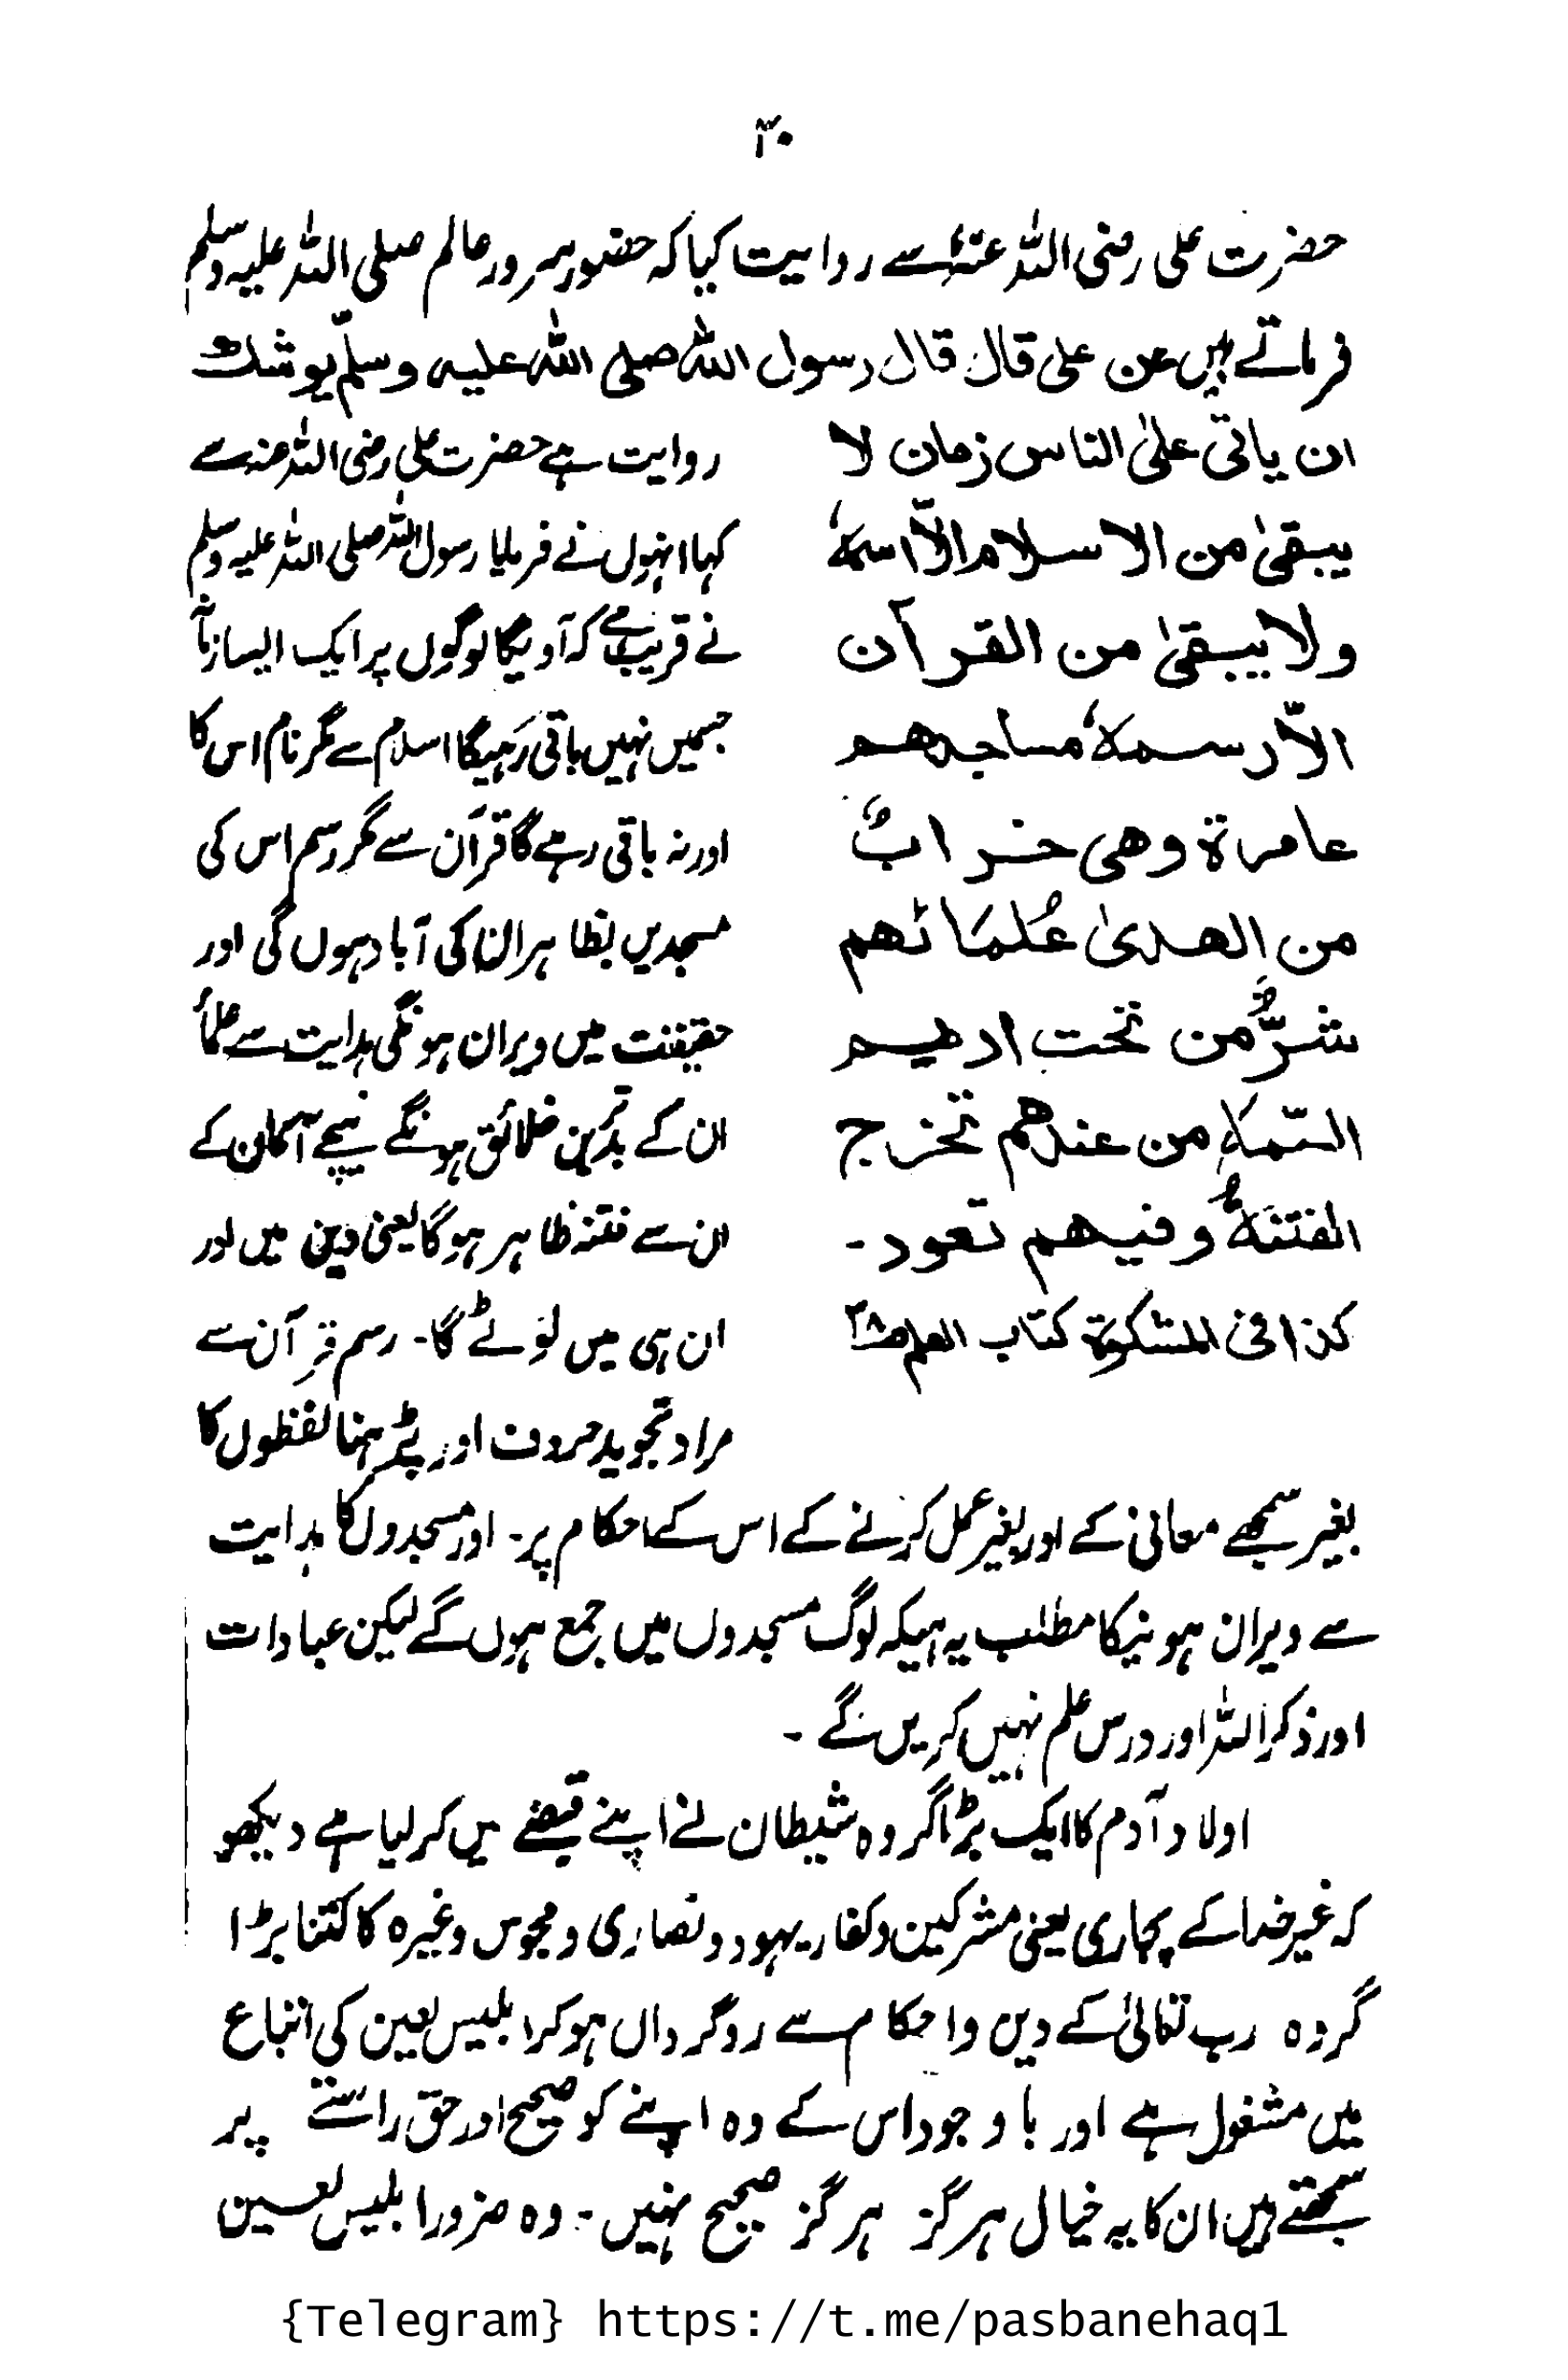 ۳۰
حضرت علی رضی اللہ عنہٗ سے روایت کیا کہ حضور سرور عالم صلی اللہ علیہ وسلم
فرماتے ہیں عن علی قال قال رسول اللہ صلی اللہ علیہ وسلّم یوشک
ان یاتی علیٰ الناس زمان لا
یبقیٰ من الاسلام الّا اسمہٗ
ولا یبقیٰ من القرآن
الّا رسمہٗ مساجدھم
عامرۃ وھی خرابٌ
من الھدیٰ عُلمَائھم
شرٌّ من تحت ادیم
السّماء من عندھم تخرج
الفتنۃُ وفیھم تعود۔
کذا فی المشکوٰۃ کتاب العلم ص۳۸
روایت ہے حضرت علی رضی اللہ عنہ سے
کہا انہوں نے فرمایا رسول اللہ صلی اللہ علیہ وسلم
نے قریب ہے کہ آویگا لوگوں پر ایک ایسا زمانہ
جسمیں نہیں باقی رَہیگا اسلام سے مگر نام اس کا
اور نہ باقی رہے گا قرآن سے مگر رسم اس کی
مسجدیں بظاہر ان کی آباد ہوں گی اور
حقیقت میں ویران ہونگی ہدایت سے علمأ
ان کے بدترین خلائق ہونگے نیچے آسمان کے
ان سے فتنہ ظاہر ہو گا یعنی دین میں اور
ان ہی میں لوٹے گا۔ رسم قرآن سے
مراد تجوید حروف اور پڑہنا لفظوں کا
بغیر سمجھے معانی کے اور بغیر عمل کرنے کے اس کے احکام پر۔ اور مسجدوں کا ہدایت
سے ویران ہونیکا مطلب یہ ہیکہ لوگ مسجدوں میں جمع ہوں گے لیکن عبادات
اور ذکر اللہ اور درس علم نہیں کریں گے ۔
اولاد آدم کا ایک بڑا گروہ شیطان نے اپنے قبضے میں کر لیا ہے دیکھو
کہ غیر خدا کے پجاری یعنی مشرکین و کفار یہود و نصاریٰ و مجوس وغیرہ کا کتنا بڑا
گروہ رب تعالیٰ کے دین و احکام سے روگرداں ہو کر ابلیس لعین کی اتباع
میں مشغول ہے اور باوجود اس کے وہ اپنے کو صحیح اور حق راستے پر
سمجھتے ہیں ان کا یہ خیال ہرگز ہرگز صحیح نہیں۔ وہ ضرور ابلیس لعین
{Telegram} https://t.me/pasbanehaq1